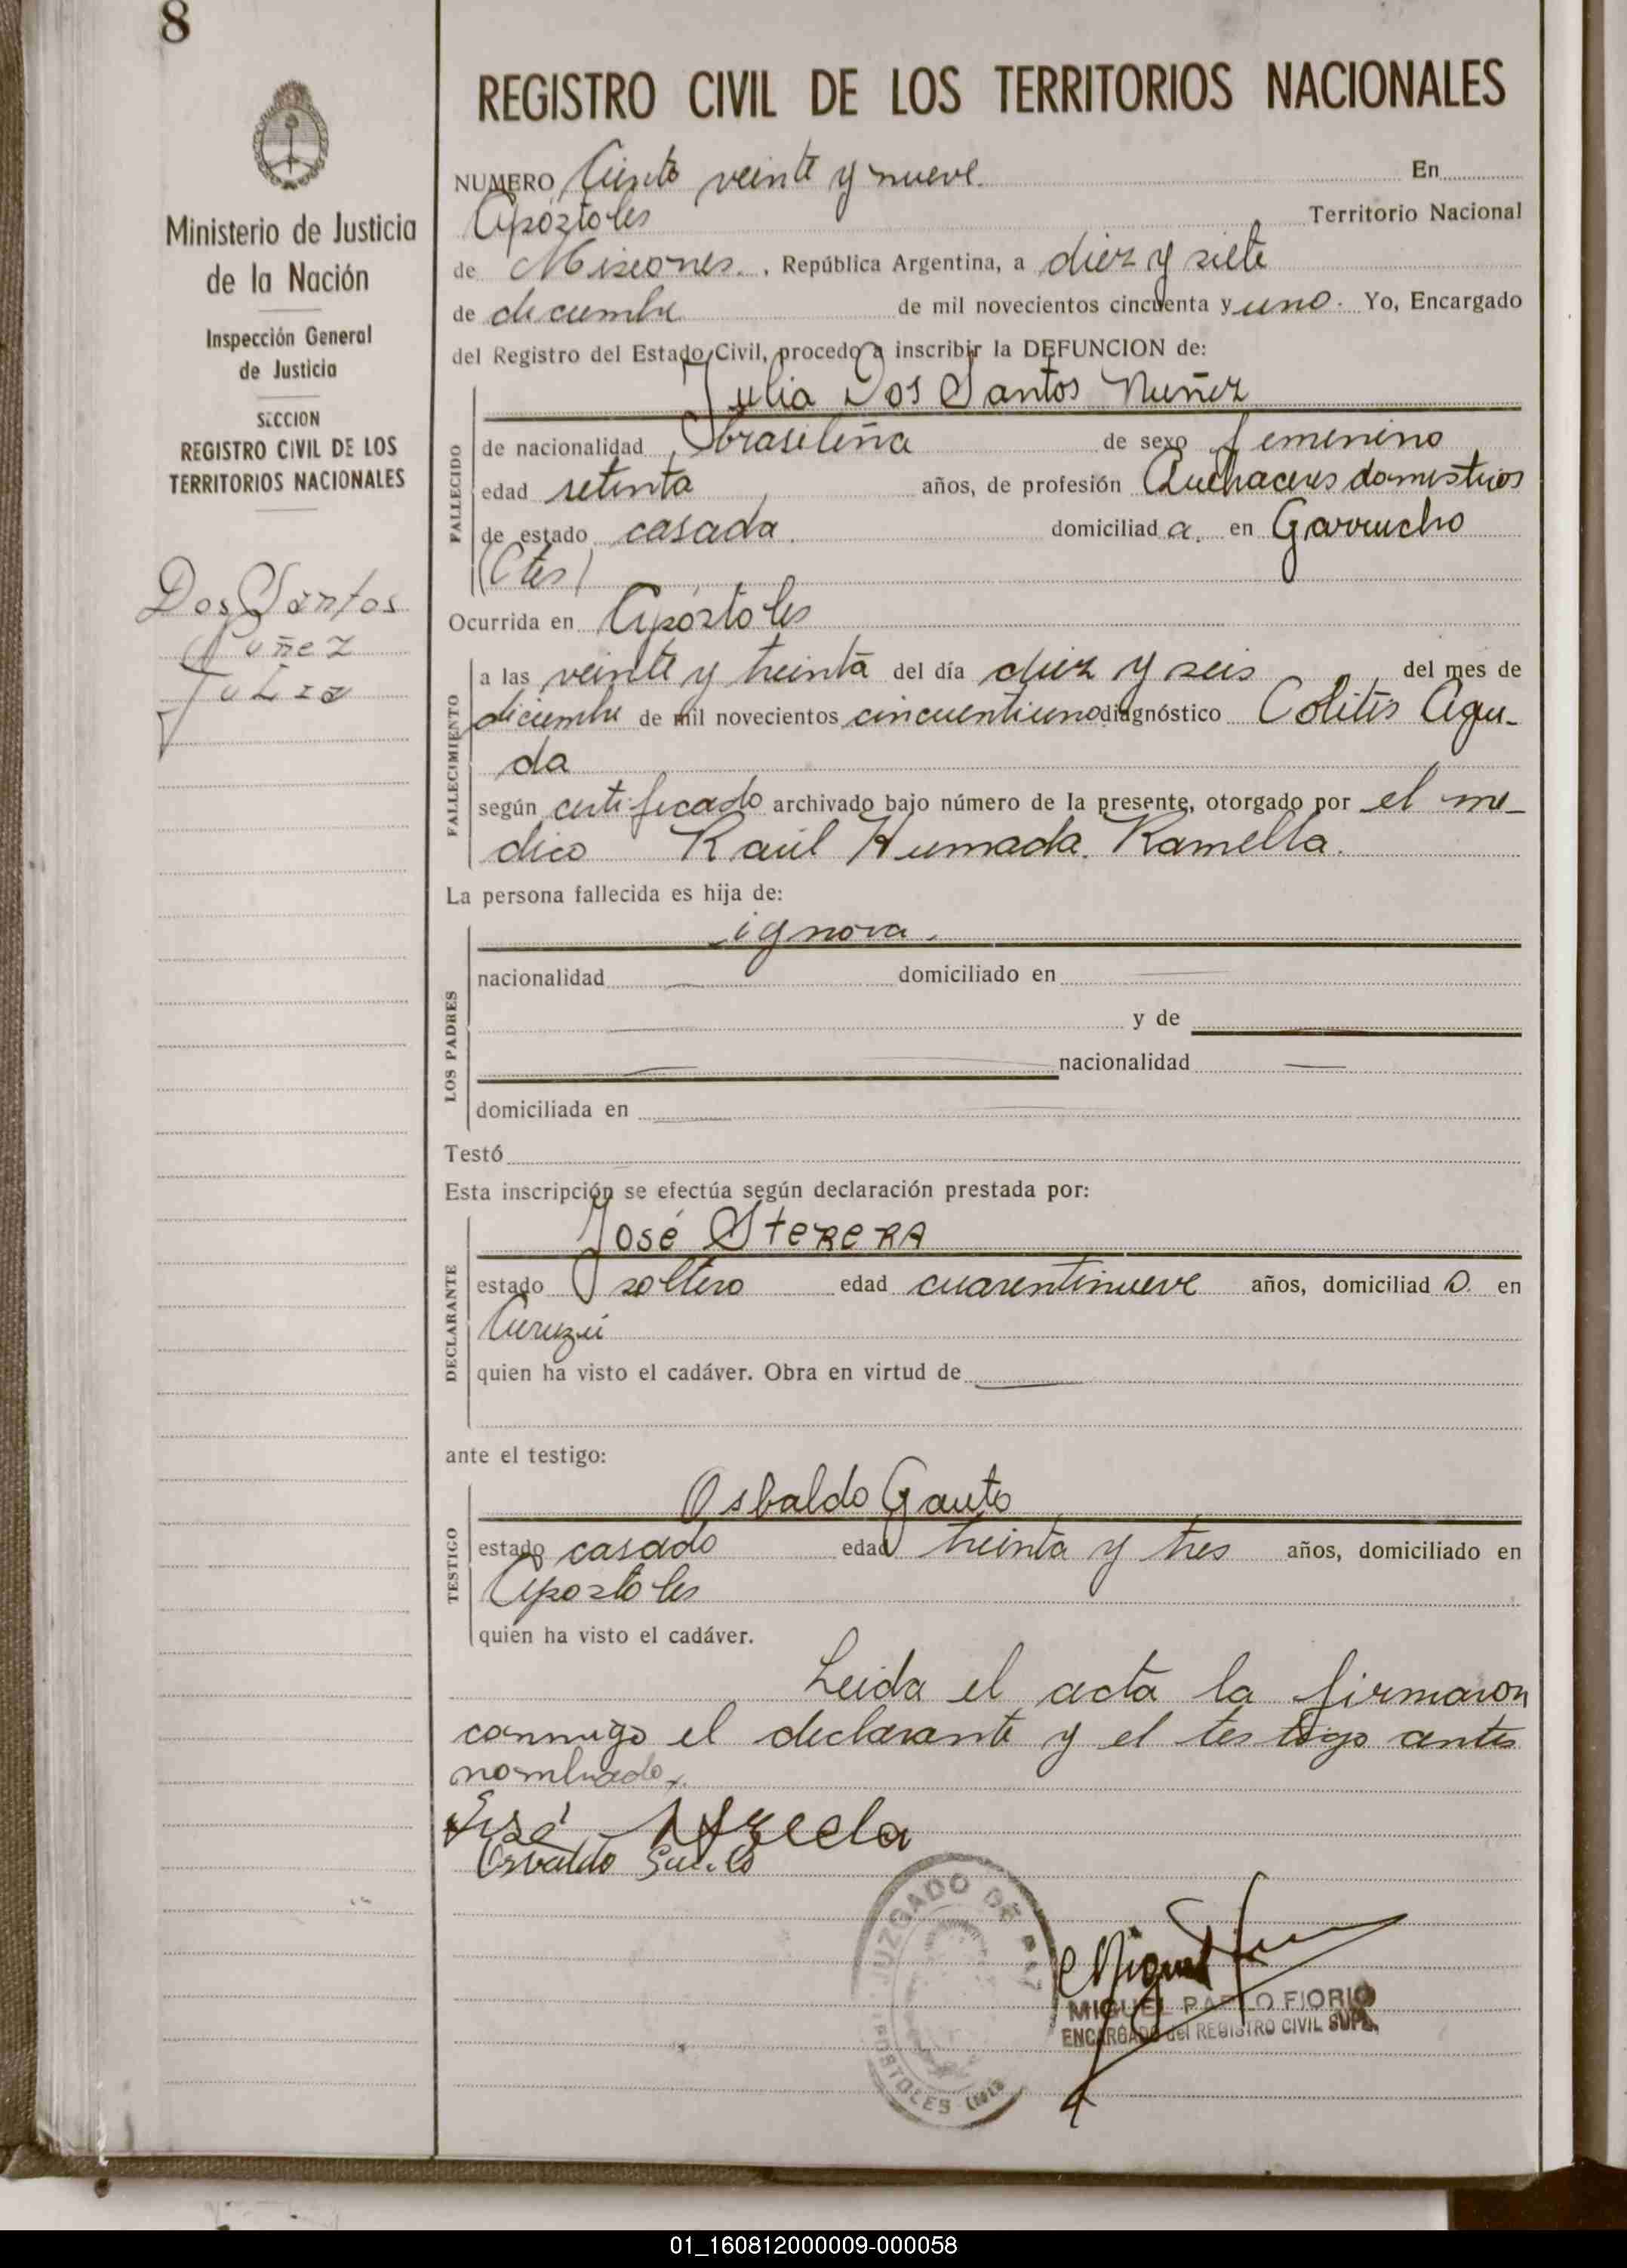 8
Ministerio de Justicia
de la Nación
Inspección General
de Justicia
SECCION
REGISTRO CIVIL DE LOS
TERRITORIOS NACIONALES
Dos Santos
Nuñez
Julia
REGISTRO CIVIL DE LOS TERRITORIOS NACIONALES
NUMERO Ciento veinte y nueve. En
Apóstoles Territorio Nacional
de Misiones., República Argentina, a diez y siete
de diciembre de mil novecientos cincuenta y uno. Yo, Encargado
del Registro del Estado Civil, procedo a inscribir la DEFUNCION de:
Julia Dos Santos Nuñez
FALLECIDO
de nacionalidad brasileña de sexo femenino
edad setenta años, de profesión Quehaceres domesticos
de estado casada. domiciliada. en Garruchо
(Ctes)
Ocurrida en Apóstoles
FALLECIMIENTO
a las veinte y treinta del día diez y seis del mes de
diciembre de mil novecientos cincuentiuno diagnóstico Colitis Agu-
da
según certificado archivado bajo número de la presente, otorgado por el me-
dico Raúl Humada Ramella.
La persona fallecida es hija de:
LOS PADRES
ignora.
nacionalidad domiciliado en
y de
nacionalidad
domiciliada en
Testó
Esta inscripción se efectúa según declaración prestada por:
DECLARANTE
José
estado soltero edad cuarentinueve años, domiciliado. en
Curuzú
quien ha visto el cadáver. Obra en virtud de
ante el testigo:
TESTIGO
Osbaldo Gauto
estado casado edad treinta y tres años, domiciliado en
Apostoles
quien ha visto el cadáver.
Leida el acta la firmaron
conmigo el declarante y el testigo antes
nombrado.
José
Osvaldo Gauto
JUZGADO DE PAZ
APOSTOLES
Miguel
MIGUEL PABLO FIORIO
ENCARGADO del REGISTRO CIVIL SUPL.
01_160812000009-000058